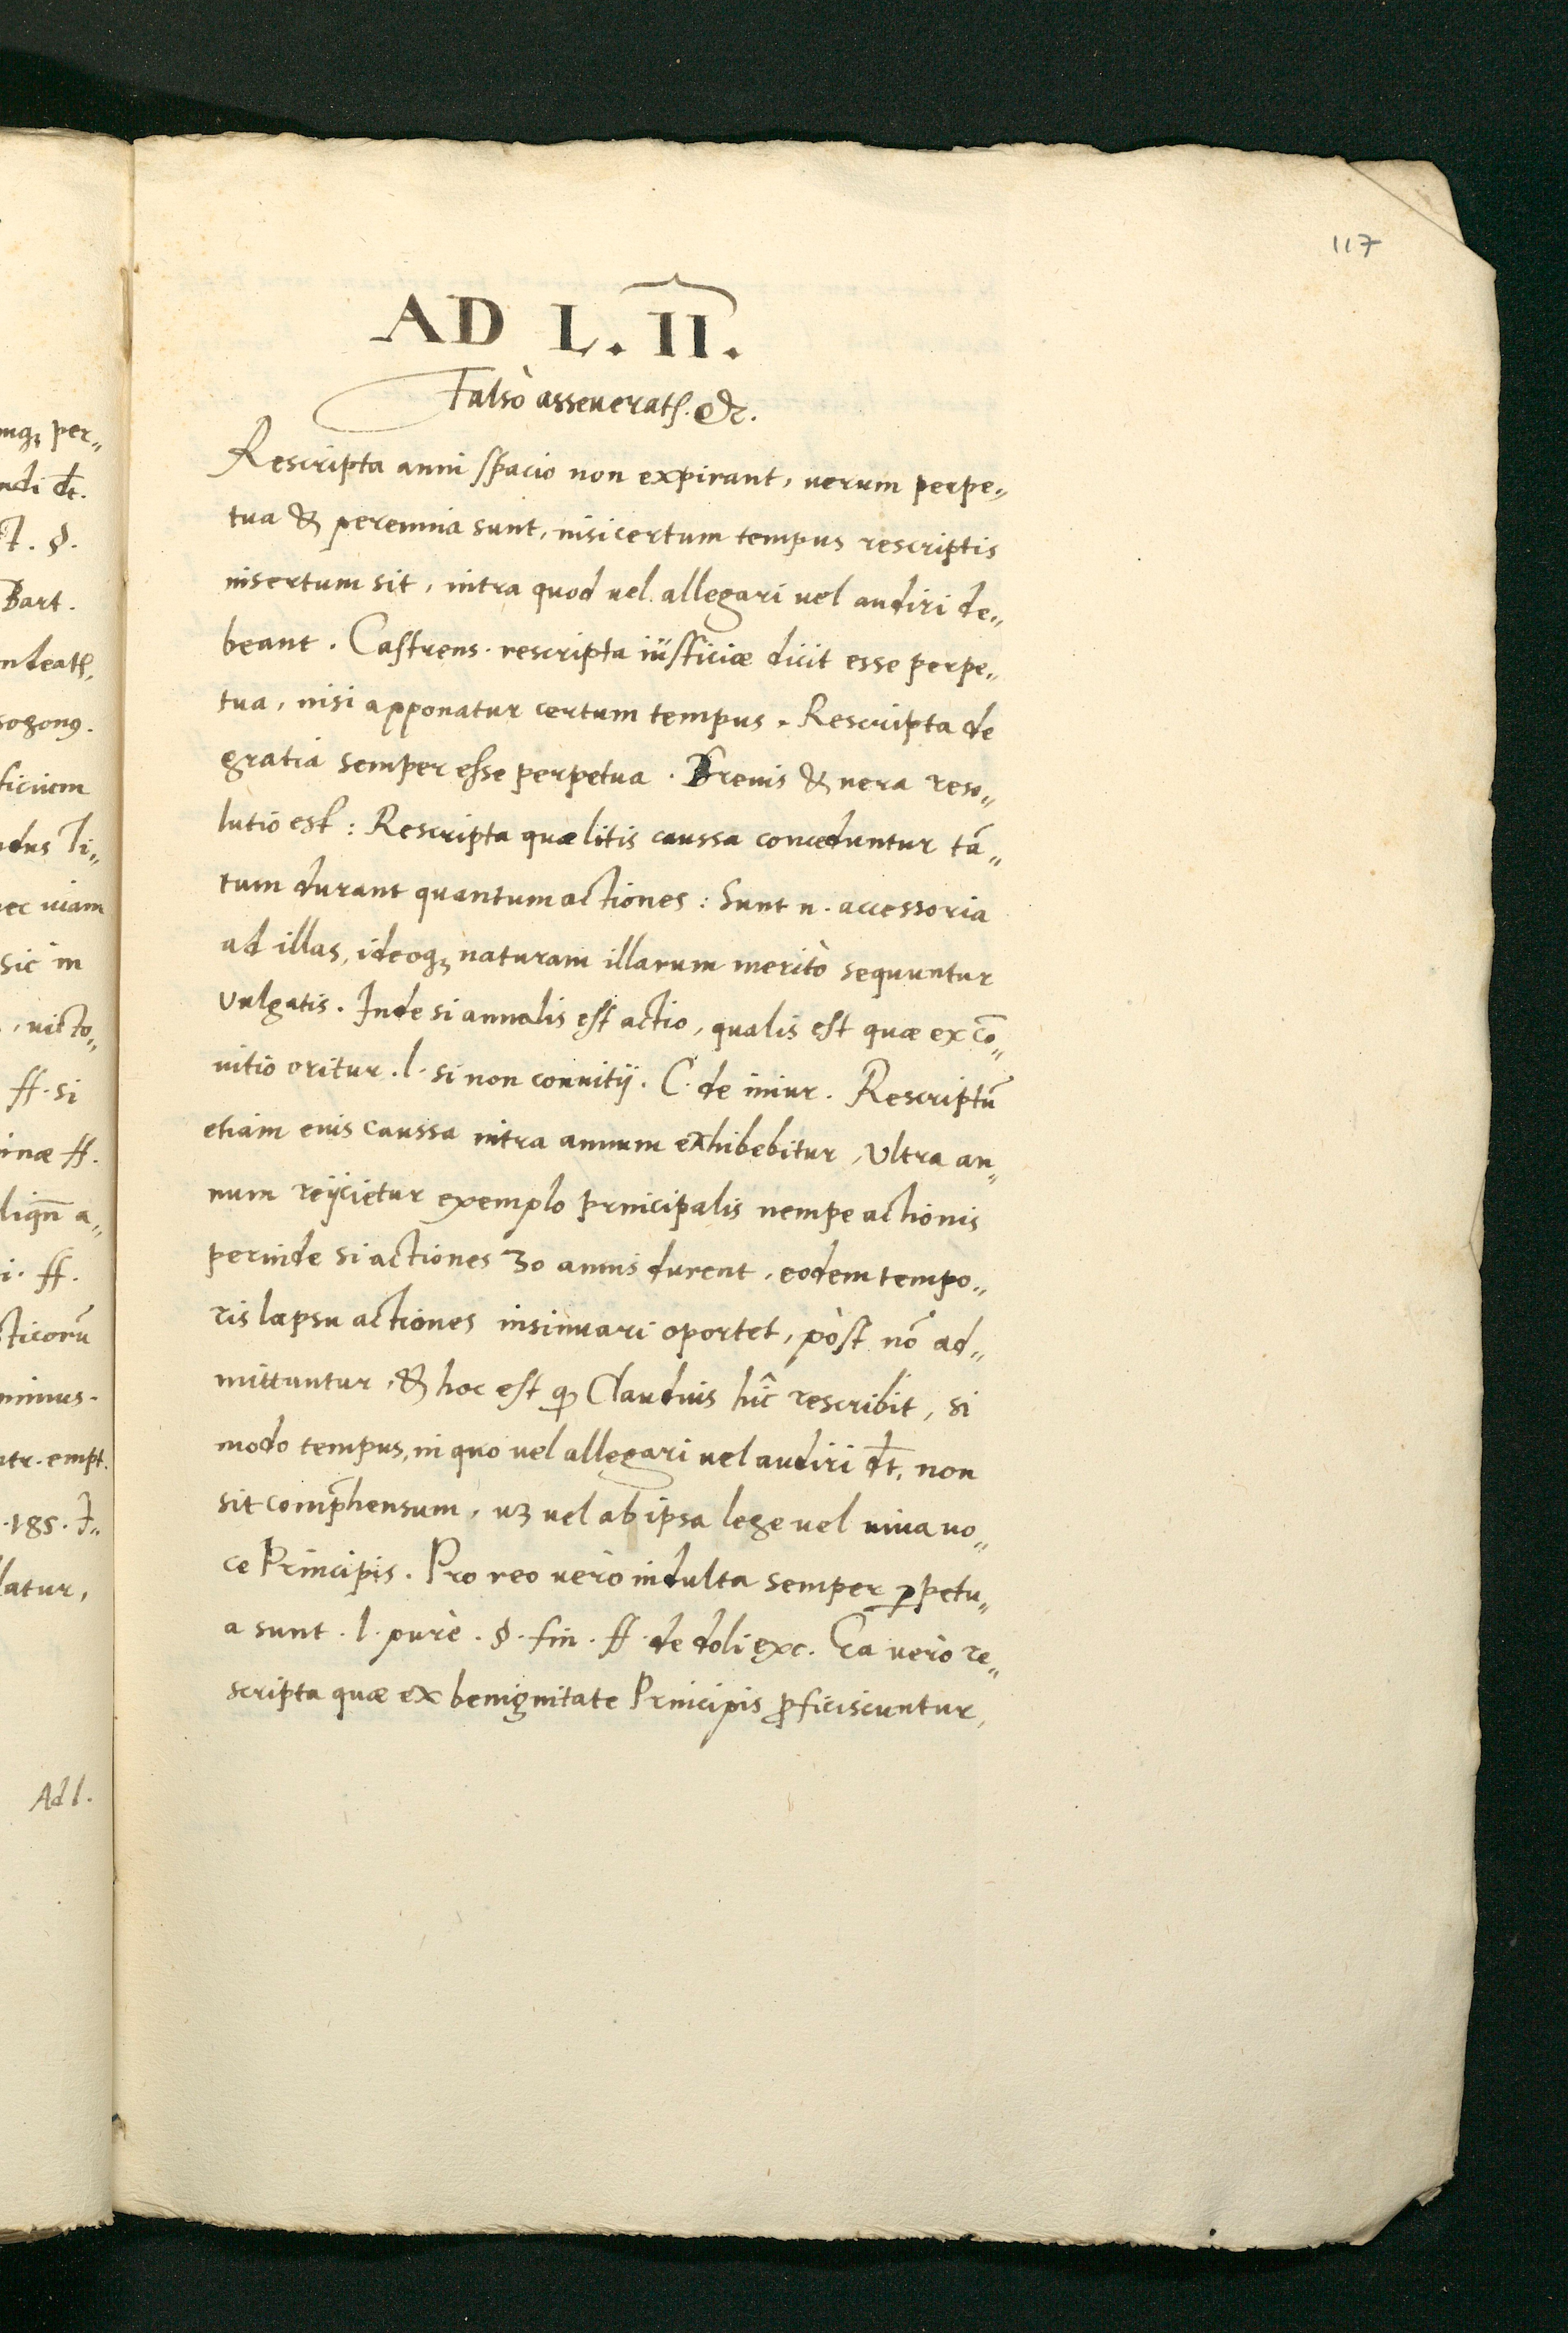 117
AD L. II.
Falsò asseueratʳ. &c.
Rescripta anni spacio non expirant, uerum perpe„
tua & perennia sunt, nisi certum tempus rescriptis
insertum sit, intra quod uel allegari uel audiri de„
beant. Castrens. rescripta iusticiæ dicit esse perpe„
tua, nisi apponatur certum tempus. Rescripta de
gratia semper esse perpetua. Breuis & uera reso„
lutio est: Rescripta quæ litis caussa conceduntur tā„
tum durant quantum actiones: Sunt n. accessoria
ad illas, ideoqꝫ naturam illarum meritò sequuntur
Vulgatis. Inde si annalis est actio, qualis est quæ ex cō„
uitio oritur. l. si non conuitij. C. de iniur. Rescriptū
etiam eius caussa intra annum exhibebitur, Vltra an„
num reijcietur exemplo principalis nempe actionis
perinde si actiones 30 annis durent, eodem tempo„
ris lapsu actiones insinuari oportet, pòst nō ad„
mittuntur, & hoc est qꝫ Claudius hîc rescribit, si
modo tempus, in quo uel allegari uel audiri dt̄, non
sit comp̄hensum, uꝫ uel ab ipsa lege uel uiua uo„
ce Principis. Pro reo uerò indulta semper ꝑpetu„
a sunt. l. purè. §. fin. ff. de doli exc. Ea uerò re„
scripta quæ ex benignitate Principis ꝓficiscuntur,
mqꝫ per„
ndi dt̄.
§.
Bart.
ndeatʳ,
ficium
dus Ti„
ec uiam
sic in
, uicto„
ff. si
inæ ff.
i. ff.
ticorū
minus.
tr. empt.
.185. J„
latur,
Ad l.